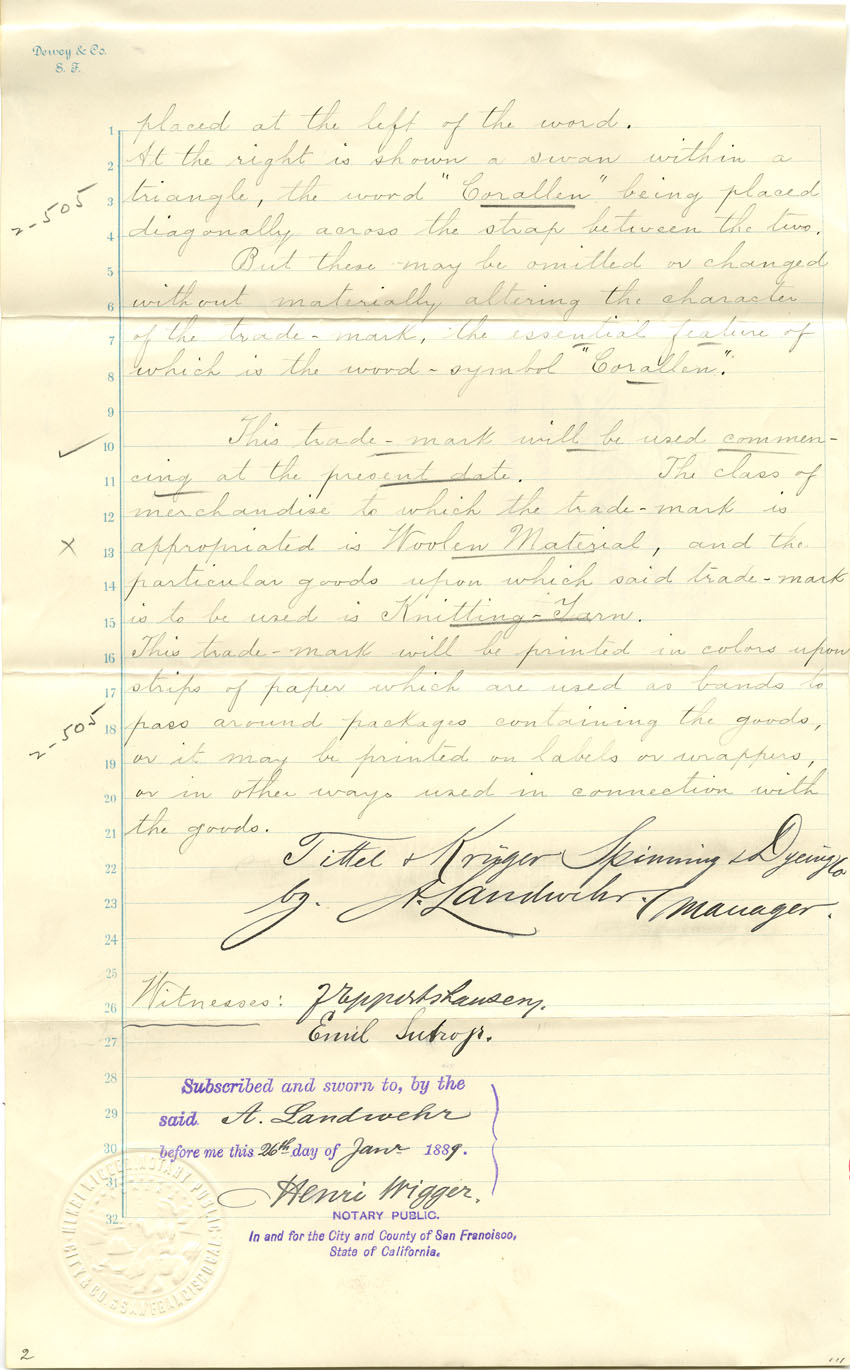 Dewey & Co.
S. F.
1 placed at the left of the word.
2 At the right is shown a swan within a
2-505
3 triangle, the word "Corallen" being placed
4 diagonally across the strap between the two.
5 But these may be omitted or changed
6 without materially altering the character
7 of the trade-mark, the essential feature of
8 which is the word-symbol "Corallen".
9
10 This trade-mark will be used commen-
11 cing at the present date. The class of
12 merchandise to which the trade-mark is
x
13 appropriated is Woolen Material, and the
14 particular goods upon which said trade-mark
15 is to be used is Knitting-Yarn.
16 This trade-mark will be printed in colors upon
17 strips of paper which are used as bands to
2-505
18 pass around packages containing the goods,
19 or it may be printed on labels or wrappers,
20 or in other ways used in connection with
21 the goods.
22 Tittel & Krüger Spinning & Dyeing Co
23 by. A. Landwehr. Manager.
24
25
26 Witnesses:
27 Emil Sutro jr.
28 Subscribed and sworn to, by the
29 said A. Landwehr
30 before me this 26th day of Janr 1889.
31 Henri Wigger.
32 NOTARY PUBLIC.
In and for the City and County of San Francisco,
State of California.
HENRI WIGGER NOTARY PUBLIC
CITY & CO. SAN FRANCISCO CAL.
2